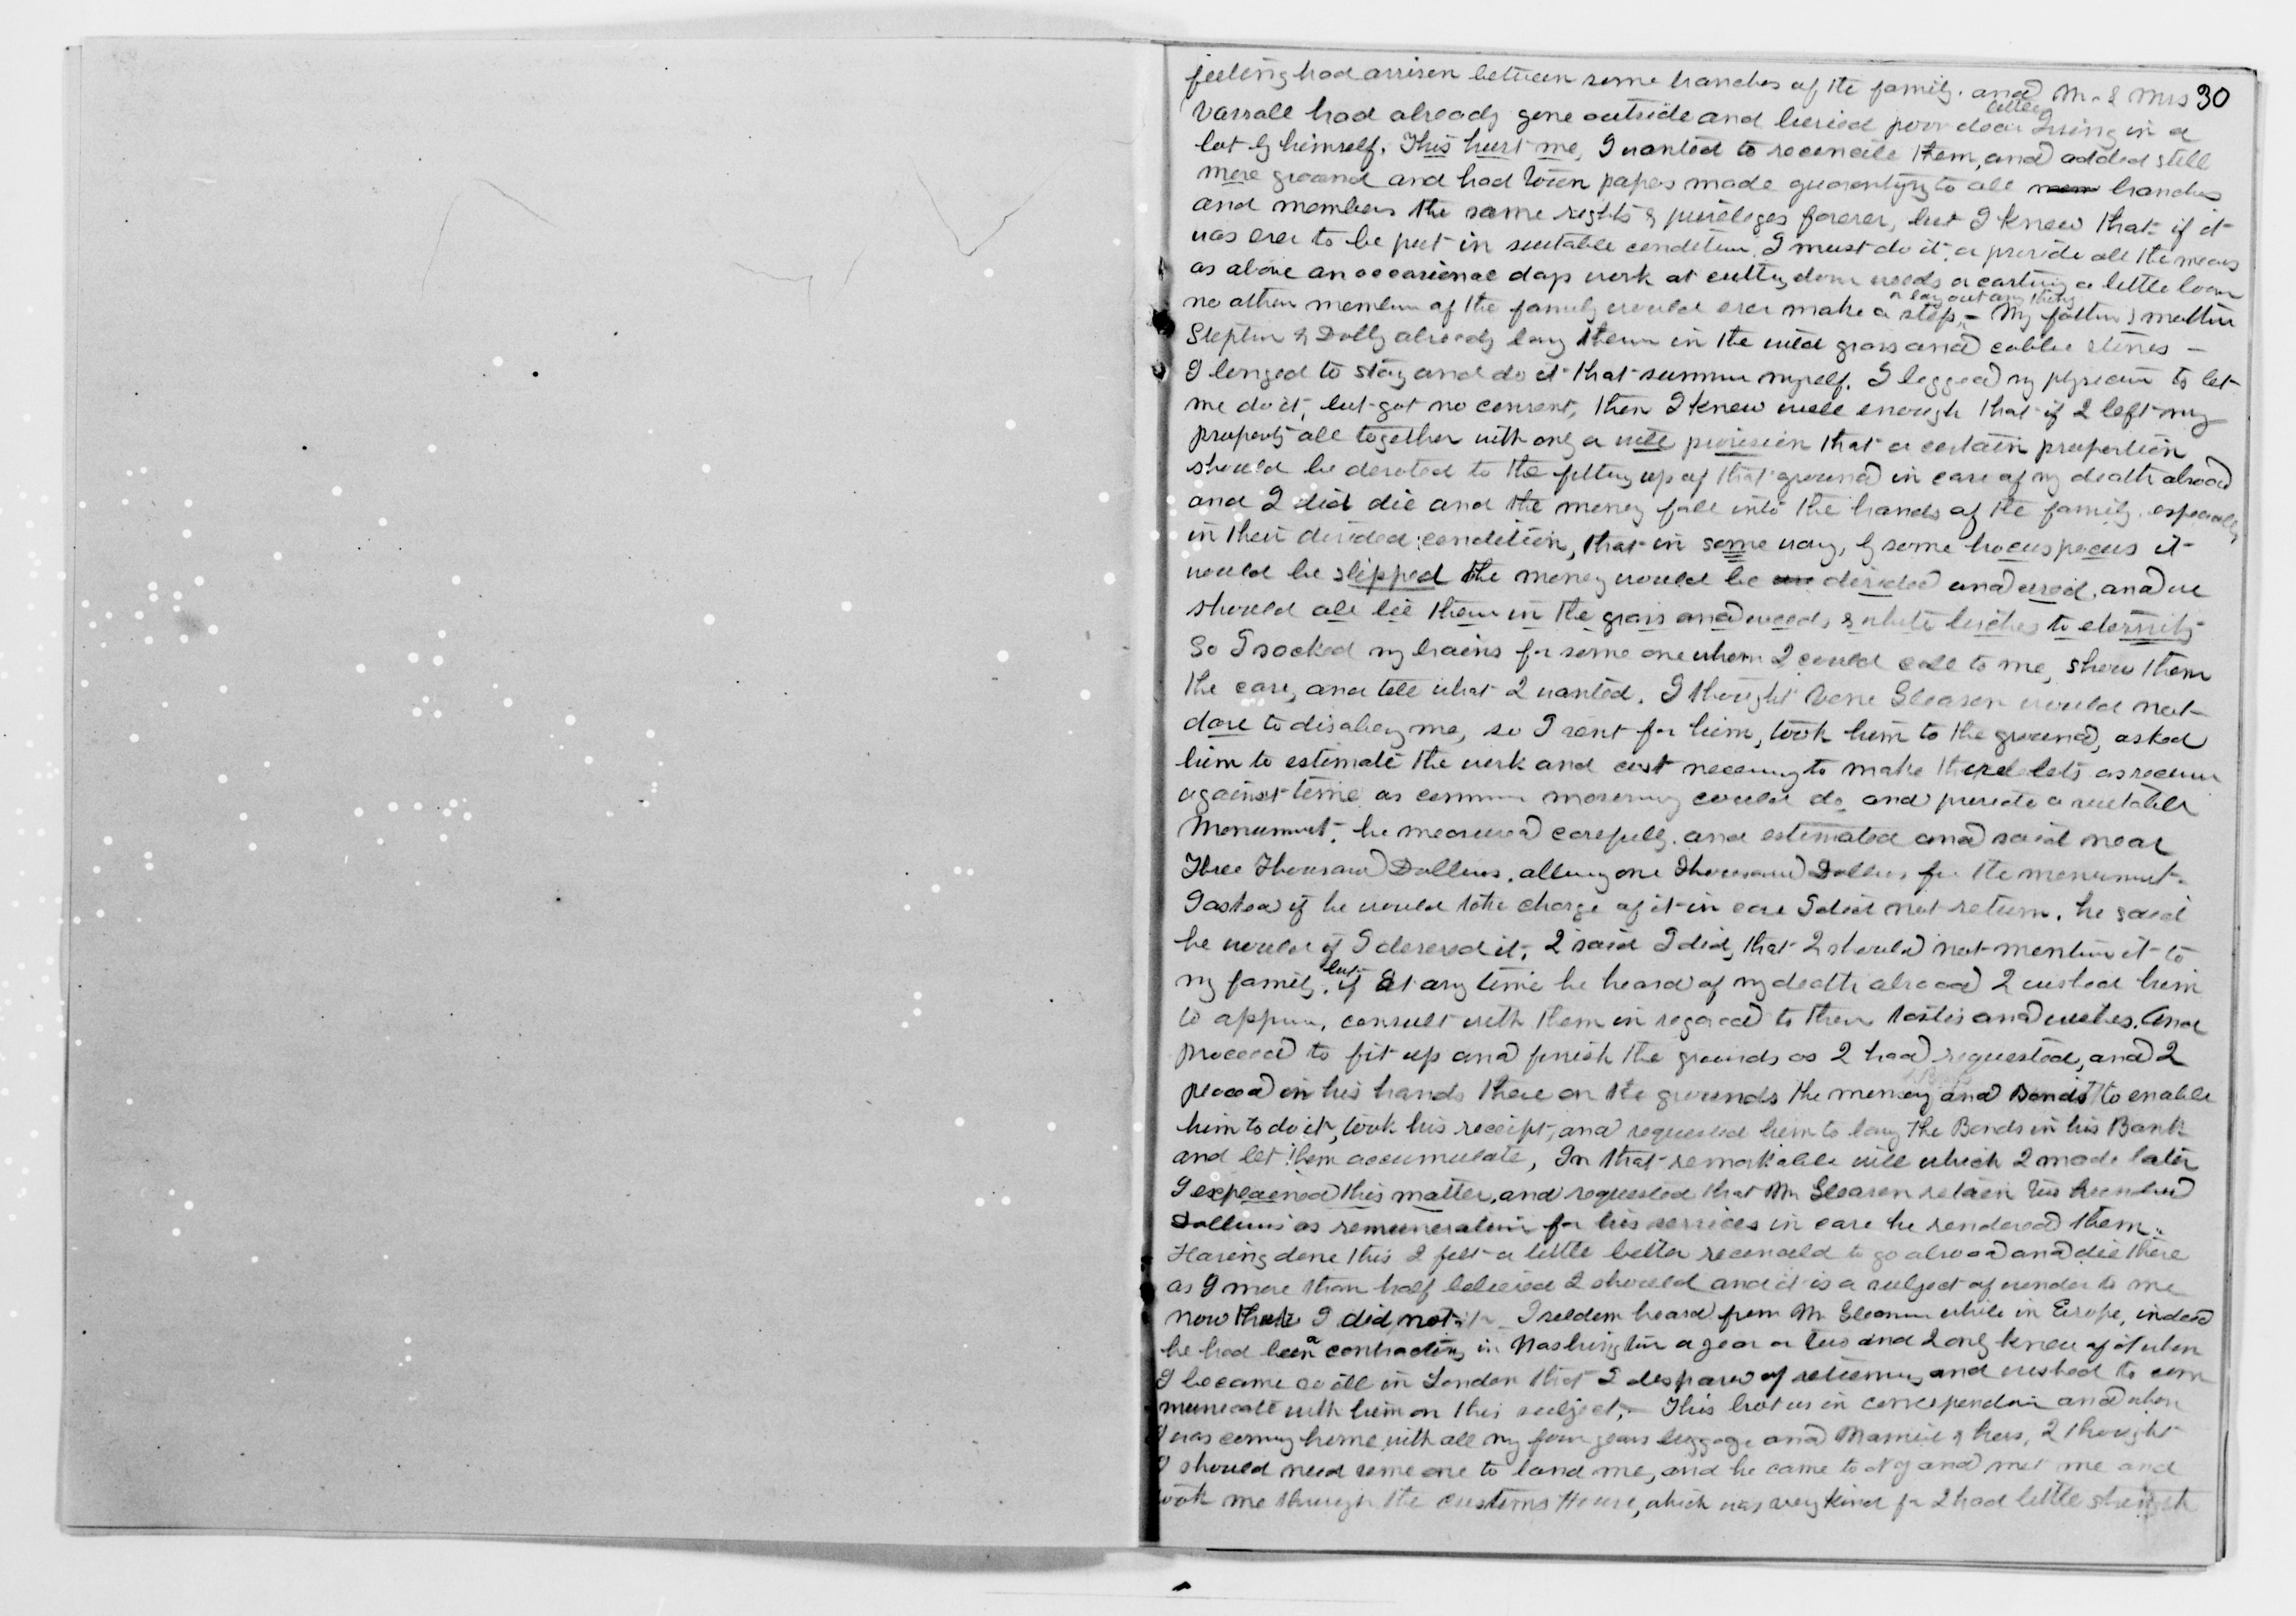 30
feeling had arrisen between some branches of the family. and Mr. & Mrs
Vassall had already gone outside and buried poor dear little Irving in a
lot by himself. This hurt me, I wanted to reconcile them, and added still
more ground and had town papers made guarantying to all branches
and members the same rights & privileges forever, but I knew that if it
was ever to be put in suitable condition, I must do it, or provide all the means
as above an occasional days work at cutting down weeds or carting a little loam
no other member of the family would ever make a step, or lay out any thing - My father & mother
Stephen & Dolly already lay there in the wild grass and cobble stones -
I longed to stay and do it that summer myself. I begged my physician to let
me do it, but got no consent, then I knew well enough that if I left my
property all together with only a will provision that a certain proportion
should be devoted to the fitting up of that ground in case of my death abroad
and I did die and the money fall into the hands of the family especially
in their divided condition, that in some way, by some hocus pocus it
would be slipped the money would be divided and used, and we
should all lie there in the grass and weeds & white birches to eternity
So I racked my brains for some one whom I could call to me, show them
the case, and tell what I wanted. I thought Vene Gleason would not
dare to disobey me, so I sent for him, took him to the ground, asked
him to estimate the work and cost necessary to make these lots as secure
against time as common masonry could do and provide a suitable
Monument. he measured carefully. and estimated and said near
Three Thousand Dollars. allowing one Thousand Dollars for the monument.
I asked if he would take charge of it in case I did not return. he said
he would if I desired it, I said I did, that I should not mention it to
my family, but if at any time he heard of my death abroad I wished him
to appear, consult with them in regard to their tastes and wishes. And
proceed to fit up and finish the grounds as I had requested, and I
placed in his hands there on the grounds the money and Bonds to enable
him to do it, took his receipt, and requested him to lay the Bonds in his Bank
and let them accumulate, In that remarkable will which I made later
I explained this matter, and requested that Mr Gleason retain two hundred
Dollars as remuneration for his services in case he rendered them.
Having done this I felt a little better reconciled to go abroad and die there
as I more than half believed I should and it is a subject of wonder to me
now that I did not I seldom heard from Mr Gleason while in Europe, indeed
he had been a contracting in Washington a year or two and I only knew of it when
I became so ill in London that I despaired of returning and wished to com
municate with him on this subject, - This brot us in correspondence and when
I was coming home with all my four years luggage and Mamie & hers, I thought
I should need some one to land me, and he came to N Y and met me and
took me through the customs House, which was very kind for I had little strength